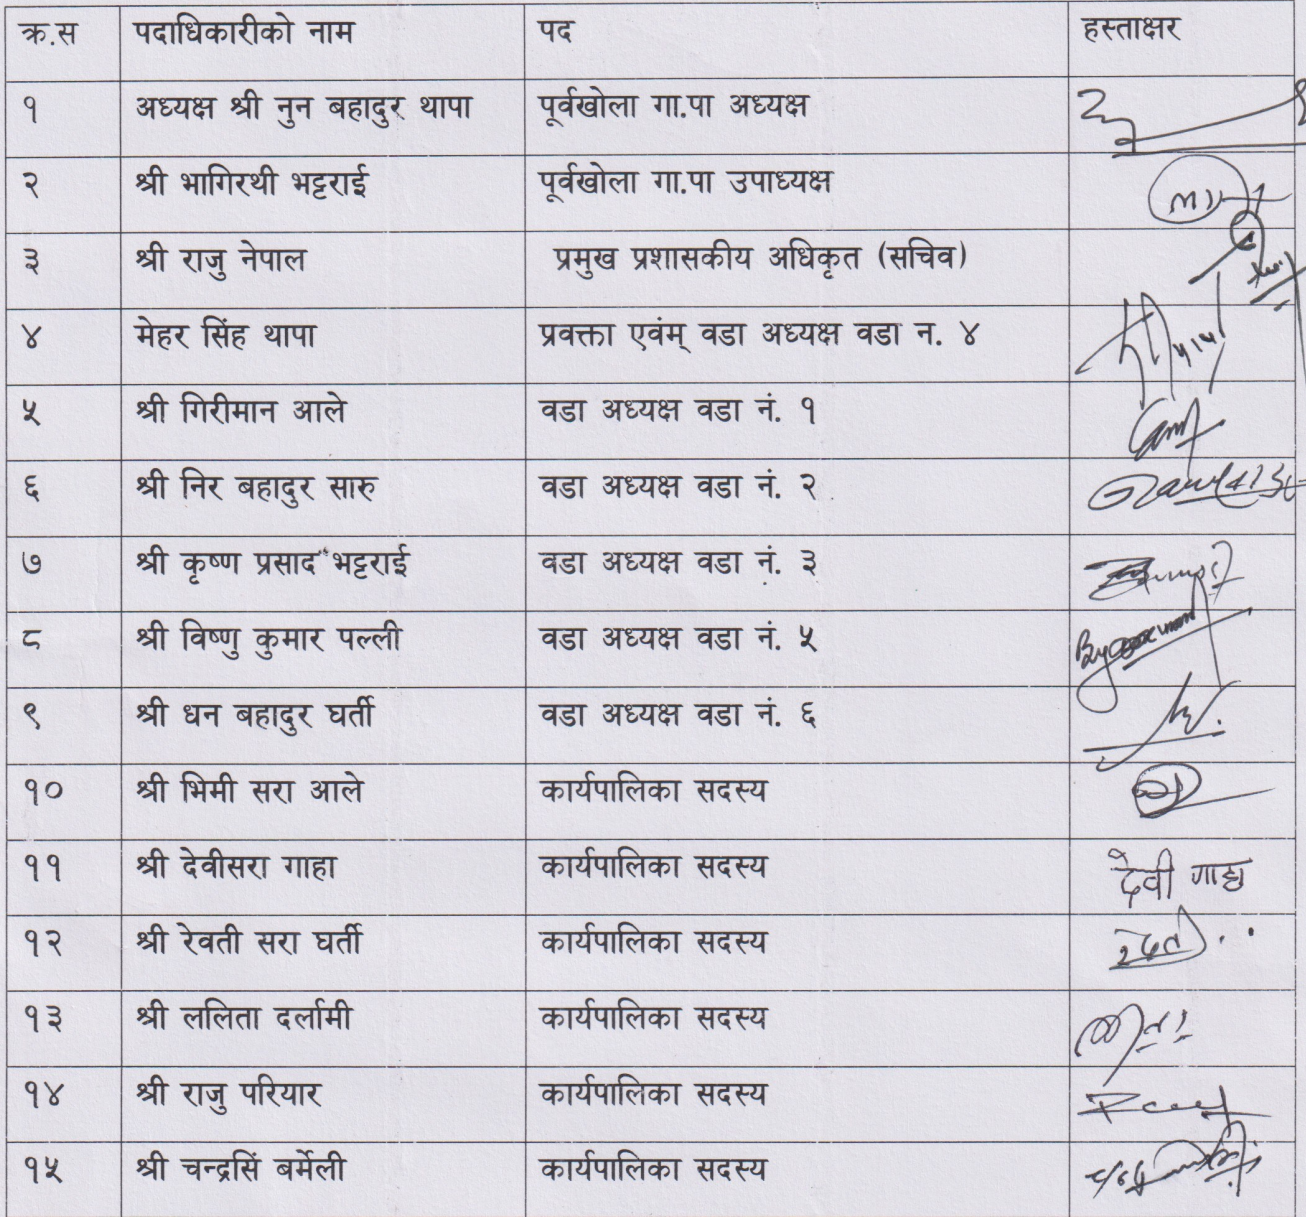 क्र.स पदाधिकारीको नाम पद हस्ताक्षर
१ अध्यक्ष श्री नुन बहादुर थापा पूर्वखोला गा.पा अध्यक्ष
२ श्री भागिरथी भट्टराई पूर्वखोला गा.पा उपाध्यक्ष
३ श्री राजु नेपाल प्रमुख प्रशासकीय अधिकृत (सचिव)
४ मेहर सिंह थापा प्रवक्ता एवंम् वडा अध्यक्ष वडा न. ४
५ श्री गिरीमान आले वडा अध्यक्ष वडा नं. १
६ श्री निर बहादुर सारु वडा अध्यक्ष वडा नं. २
७ श्री कृष्ण प्रसाद भट्टराई वडा अध्यक्ष वडा नं. ३
८ श्री विष्णु कुमार पल्ली वडा अध्यक्ष वडा नं. ५
९ श्री धन बहादुर घर्ती वडा अध्यक्ष वडा नं. ६
१० श्री भिमी सरा आले कार्यपालिका सदस्य
११ श्री देवीसरा गाहा कार्यपालिका सदस्य देवी गाहा
१२ श्री रेवती सरा घर्ती कार्यपालिका सदस्य
१३ श्री ललिता दर्लामी कार्यपालिका सदस्य
१४ श्री राजु परियार कार्यपालिका सदस्य
१५ श्री चन्द्रसिं बर्मेली कार्यपालिका सदस्य